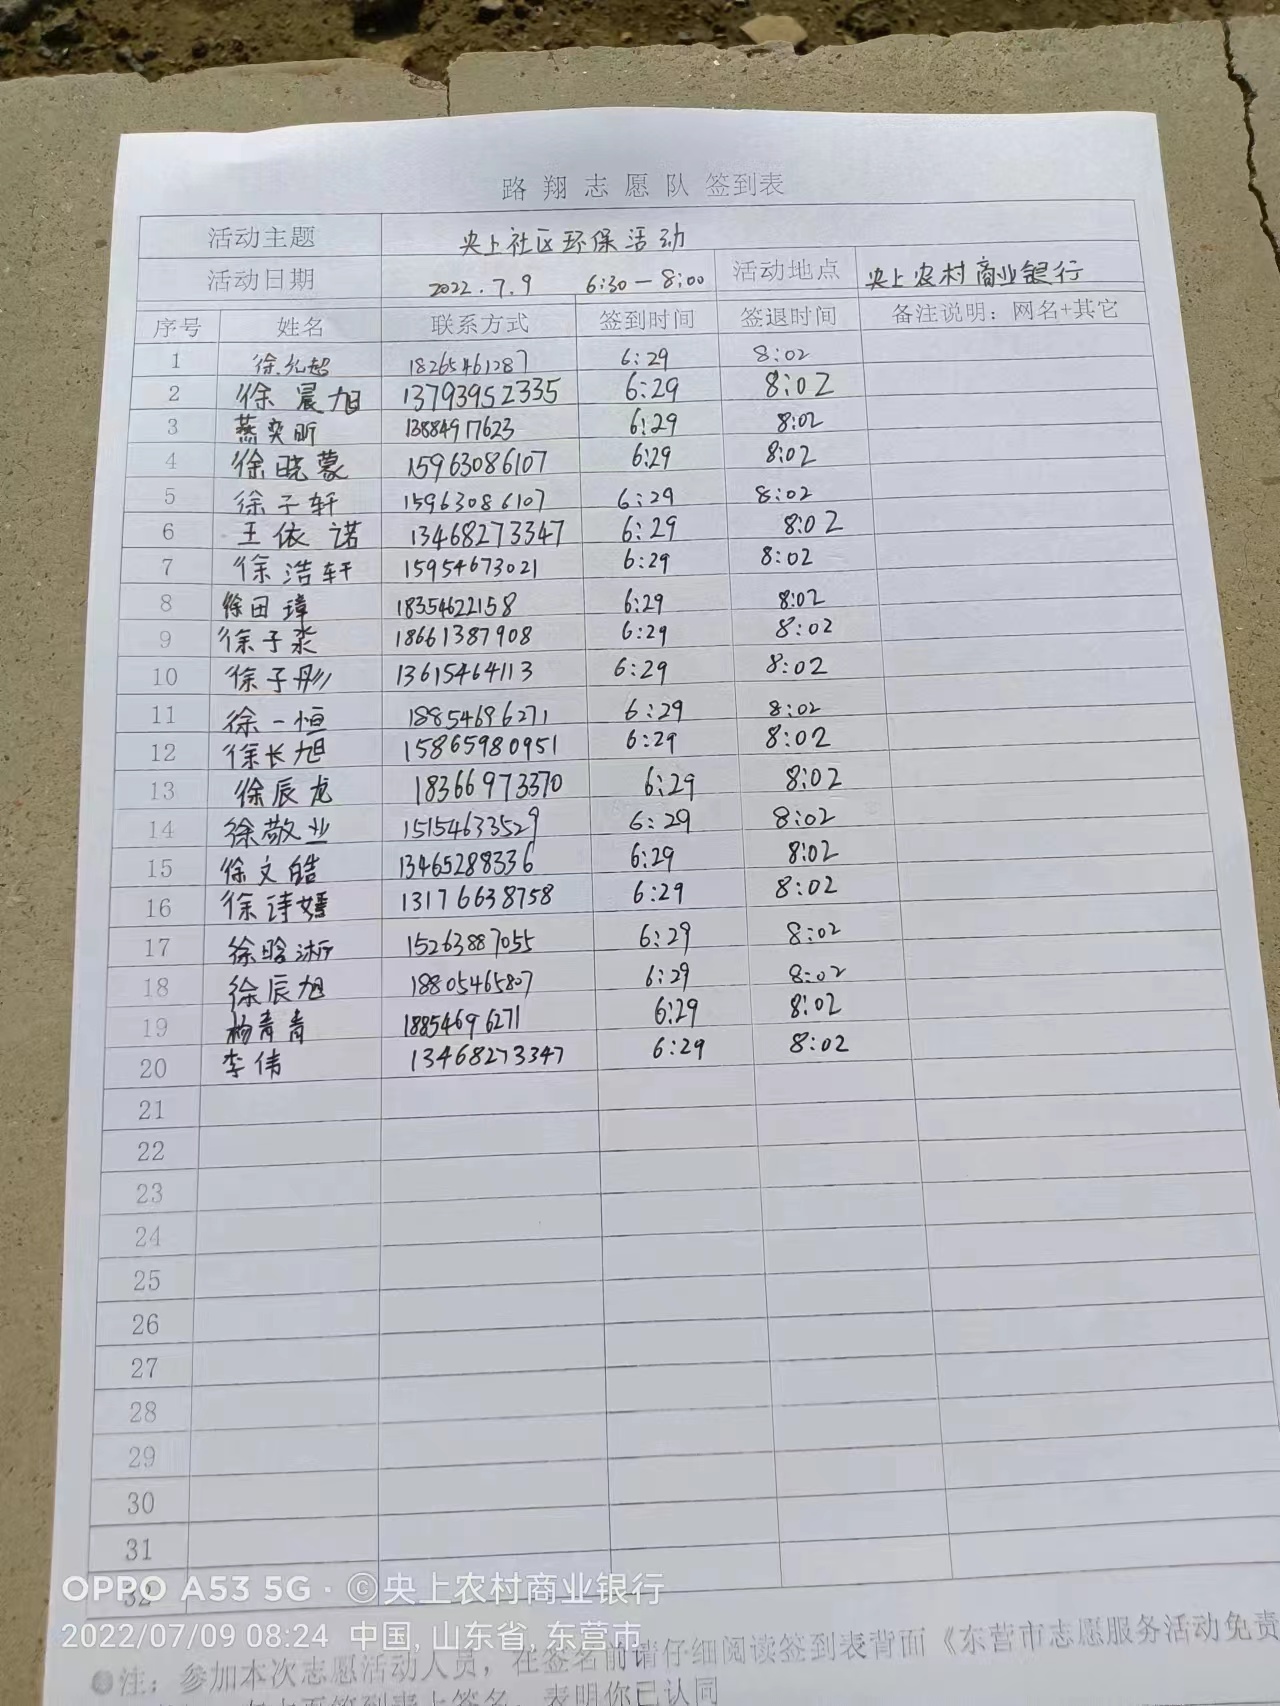 路翔志愿队 签到表
活动主题 央上社区环保活动
活动日期 2022.7.9 6:30-8:00 活动地点 央上农村商业银行
序号 姓名 联系方式 签到时间 签退时间 备注说明：网名+其它
1 徐允超 18265461287 6:29 8:02
2 徐晨旭 13793952335 6:29 8:02
3 燕奕昕 13884917623 6:29 8:02
4 徐晓蒙 15963086107 6:29 8:02
5 徐子轩 15963086107 6:29 8:02
6 王依诺 13468273347 6:29 8:02
7 徐浩轩 15954673021 6:29 8:02
8 徐田璋 18354622158 6:29 8:02
9 徐子淼 18661387908 6:29 8:02
10 徐子彤 13615464113 6:29 8:02
11 徐一恒 18854696271 6:29 8:02
12 徐长旭 15865980951 6:29 8:02
13 徐辰龙 18366973370 6:29 8:02
14 徐敬业 15154633529 6:29 8:02
15 徐文皓 13465288336 6:29 8:02
16 徐诗嫣 13176638758 6:29 8:02
17 徐晗淅 15263887055 6:29 8:02
18 徐辰旭 18805465807 6:29 8:02
19 杨青青 18854696271 6:29 8:02
20 李伟 13468273347 6:29 8:02
21
22
23
24
25
26
27
28
29
30
31
32
OPPO A53 5G · ©央上农村商业银行
2022/07/09 08:24 中国, 山东省, 东营市
注：参加本次志愿活动人员，在签名前请仔细阅读签到表背面《东营市志愿服务活动免责
签到表上签名，表明你已认同